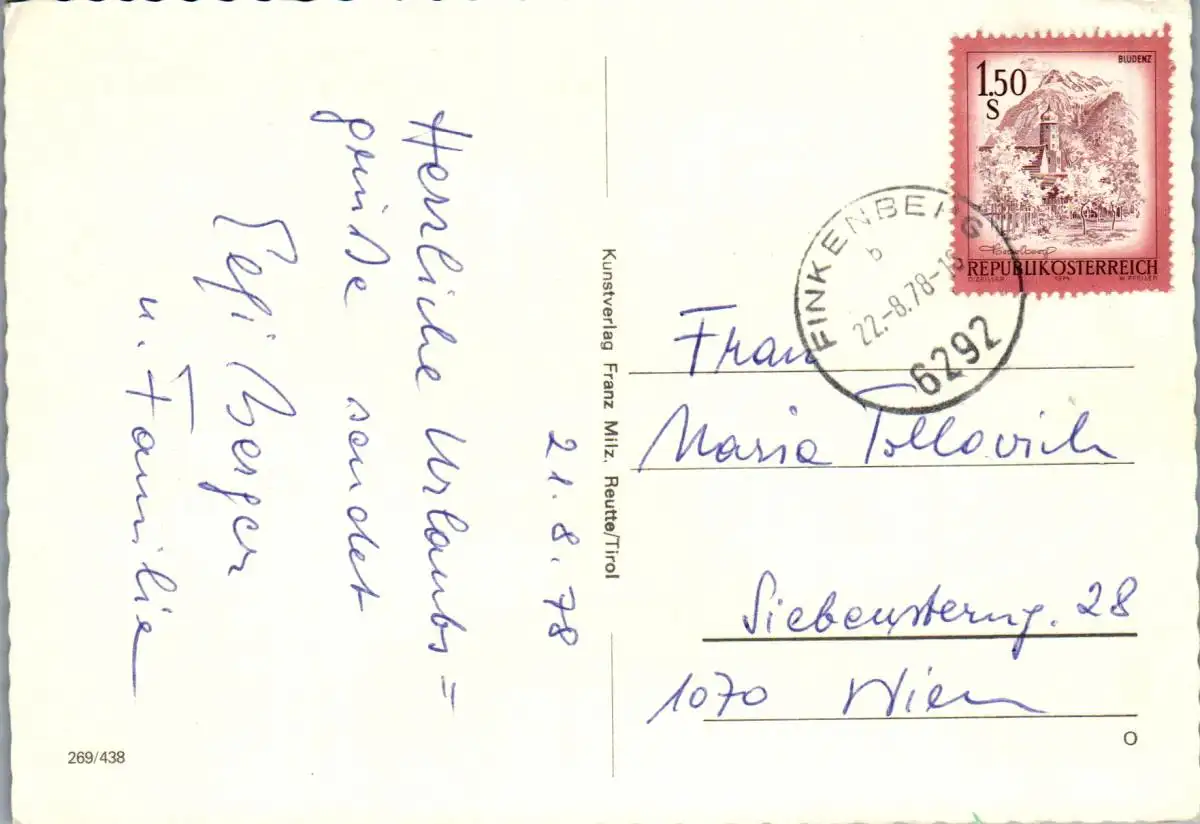 21.8.78
Herrliche Urlaubs=
grüße sendet
Berger
u. Familie
269/438
Kunstverlag Franz Milz, Reutte/Tirol
1.50
S
BLUDENZ
REPUBLIK ÖSTERREICH
FINKENBERG
b
22.-8.78-18
6292
Frau
Maria Tollovich
Siebensterng. 28
1070 Wien
O